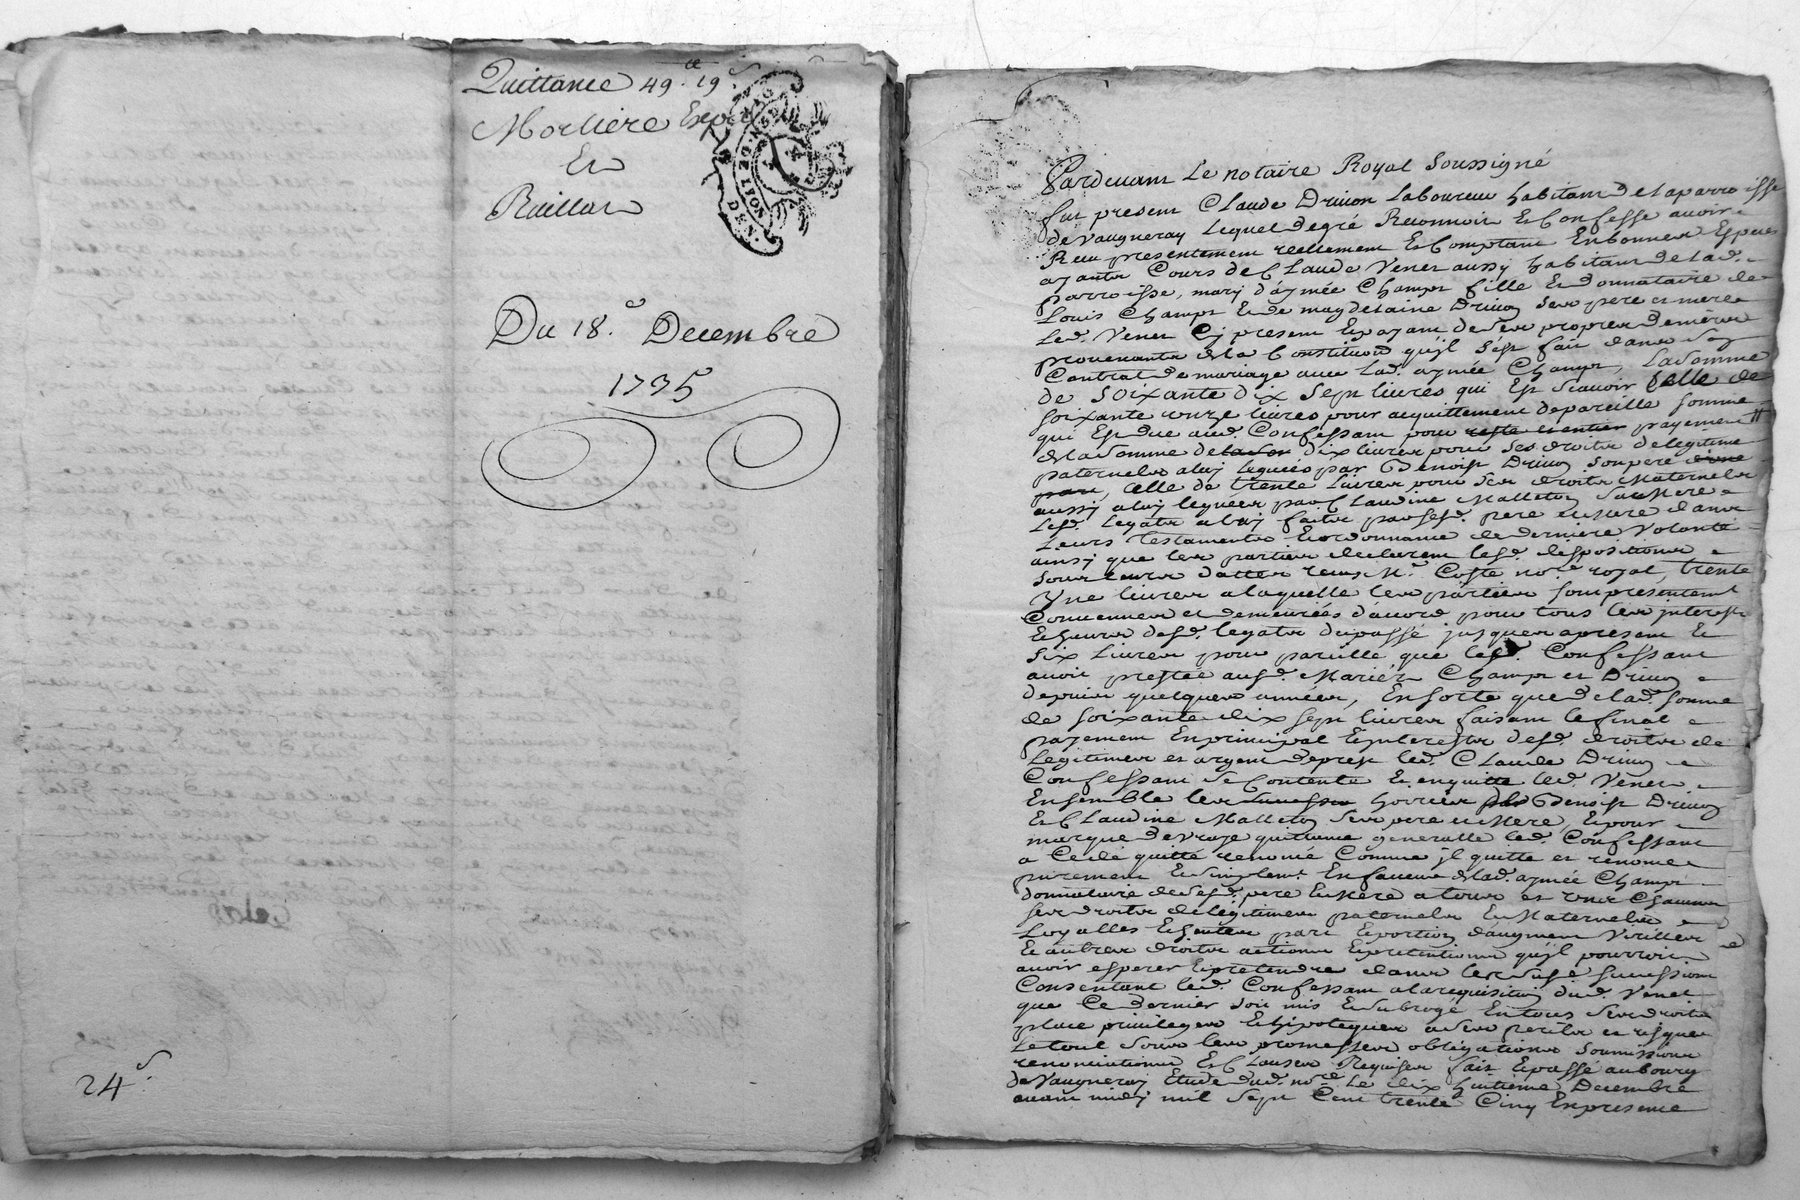 Quittance 49.tt 19.s
Morliere
Et
Raillon
GEN. DE LYON
Du 18.e Decembre
1735
24.s
Pardevant Le notaire Royal Soussigné
fut present Claude Drivon Laboureur habitant de la parroisse
de Vaugneray Lequel de gré Reconnoit Et Confesse avoir
Reçu presentement reellement Et Comptant En bonnes Especes
ayants Cours de Claude Venet aussy habitant de lad.
parroisse, mary d'aymée Champt fille Et donnataire de
Louis Champt Et de magdelaine Drivon ses pere et mere
Led. Venet Cy present Et payant de ses propres deniers
provenants de la Constitution qu'jl s'est fait dans son
Contrat de mariage avec Lad. aymée Champt, La somme
de soixante dix sept livres qui Est scavoir Celle de
soixante onze livres pour acquittement de pareille somme
qui Est due aud. Confessant pour reste et entier payement
de la somme de dix livres pour ses droits de legitime
paternels a luy legués par Benoist Drivon son pere
celle de trente Livres pour ses droits Maternels
aussy a luy leguées par Claudine Malleton sa Mere
Lesd. Legats a luy faits par sesd. pere et Mere dans
Leurs Testaments Et ordonnance de derniere Volonté
ainsy que les parties declarent lesd. despositions
sous leurs dattes recus Me. Coste nore. royal, trente
Une livres a laquelle les parties sont presentement
Convennues et demeurées d'accord pour tous les jnterests
Echeus desd. legats du passé jusques a present Et
six Livres pour pareille que led. Confessant
avoit prestée ausd. Mariés Champt et Drivon
depuis quelques années, En sorte que de lad. somme
de soixante dix sept livres faisant le final
payement En principal Et jnterests desd. droits de
Legitimes et argent de prest led. Claude Drivon
Confessant se Contente Et en quitte led. Venet
Ensemble les hoirries de Benoist Drivon
Et Claudine Malleton ses pere et Mere, Et pour
marque de vraye quittance generalle led. Confessant
a Cedé quitté renoncé Comme jl quitte et renonce
purement Et simplemt. En faveur de lad. aymée Champt
donnataire de sesd. pere Et Mere a tous et uns Chacuns
ses droits de legitimes paternels Et Maternels
Loyalles Et part Et portion d'augment Virilles
Et autres droits actions Et pretentions qu'jl pourroit
avoir esperer Et pretendre dans les susd. successions
Consentant led. Confessant a la requisition dud. Venet
que Ce dernier soit mis Et subrogé En tous ses droits
place privileges Et hipoteques a ses perils et risques
Le tout sous les promesses obligations soumissions
renonciations Et Clauses Requises fait Et passé au bourg
de Vaugneray Etude dud. nore. Le dix huitieme Decembre
avant midy mil sept Cent trente Cinq En presence